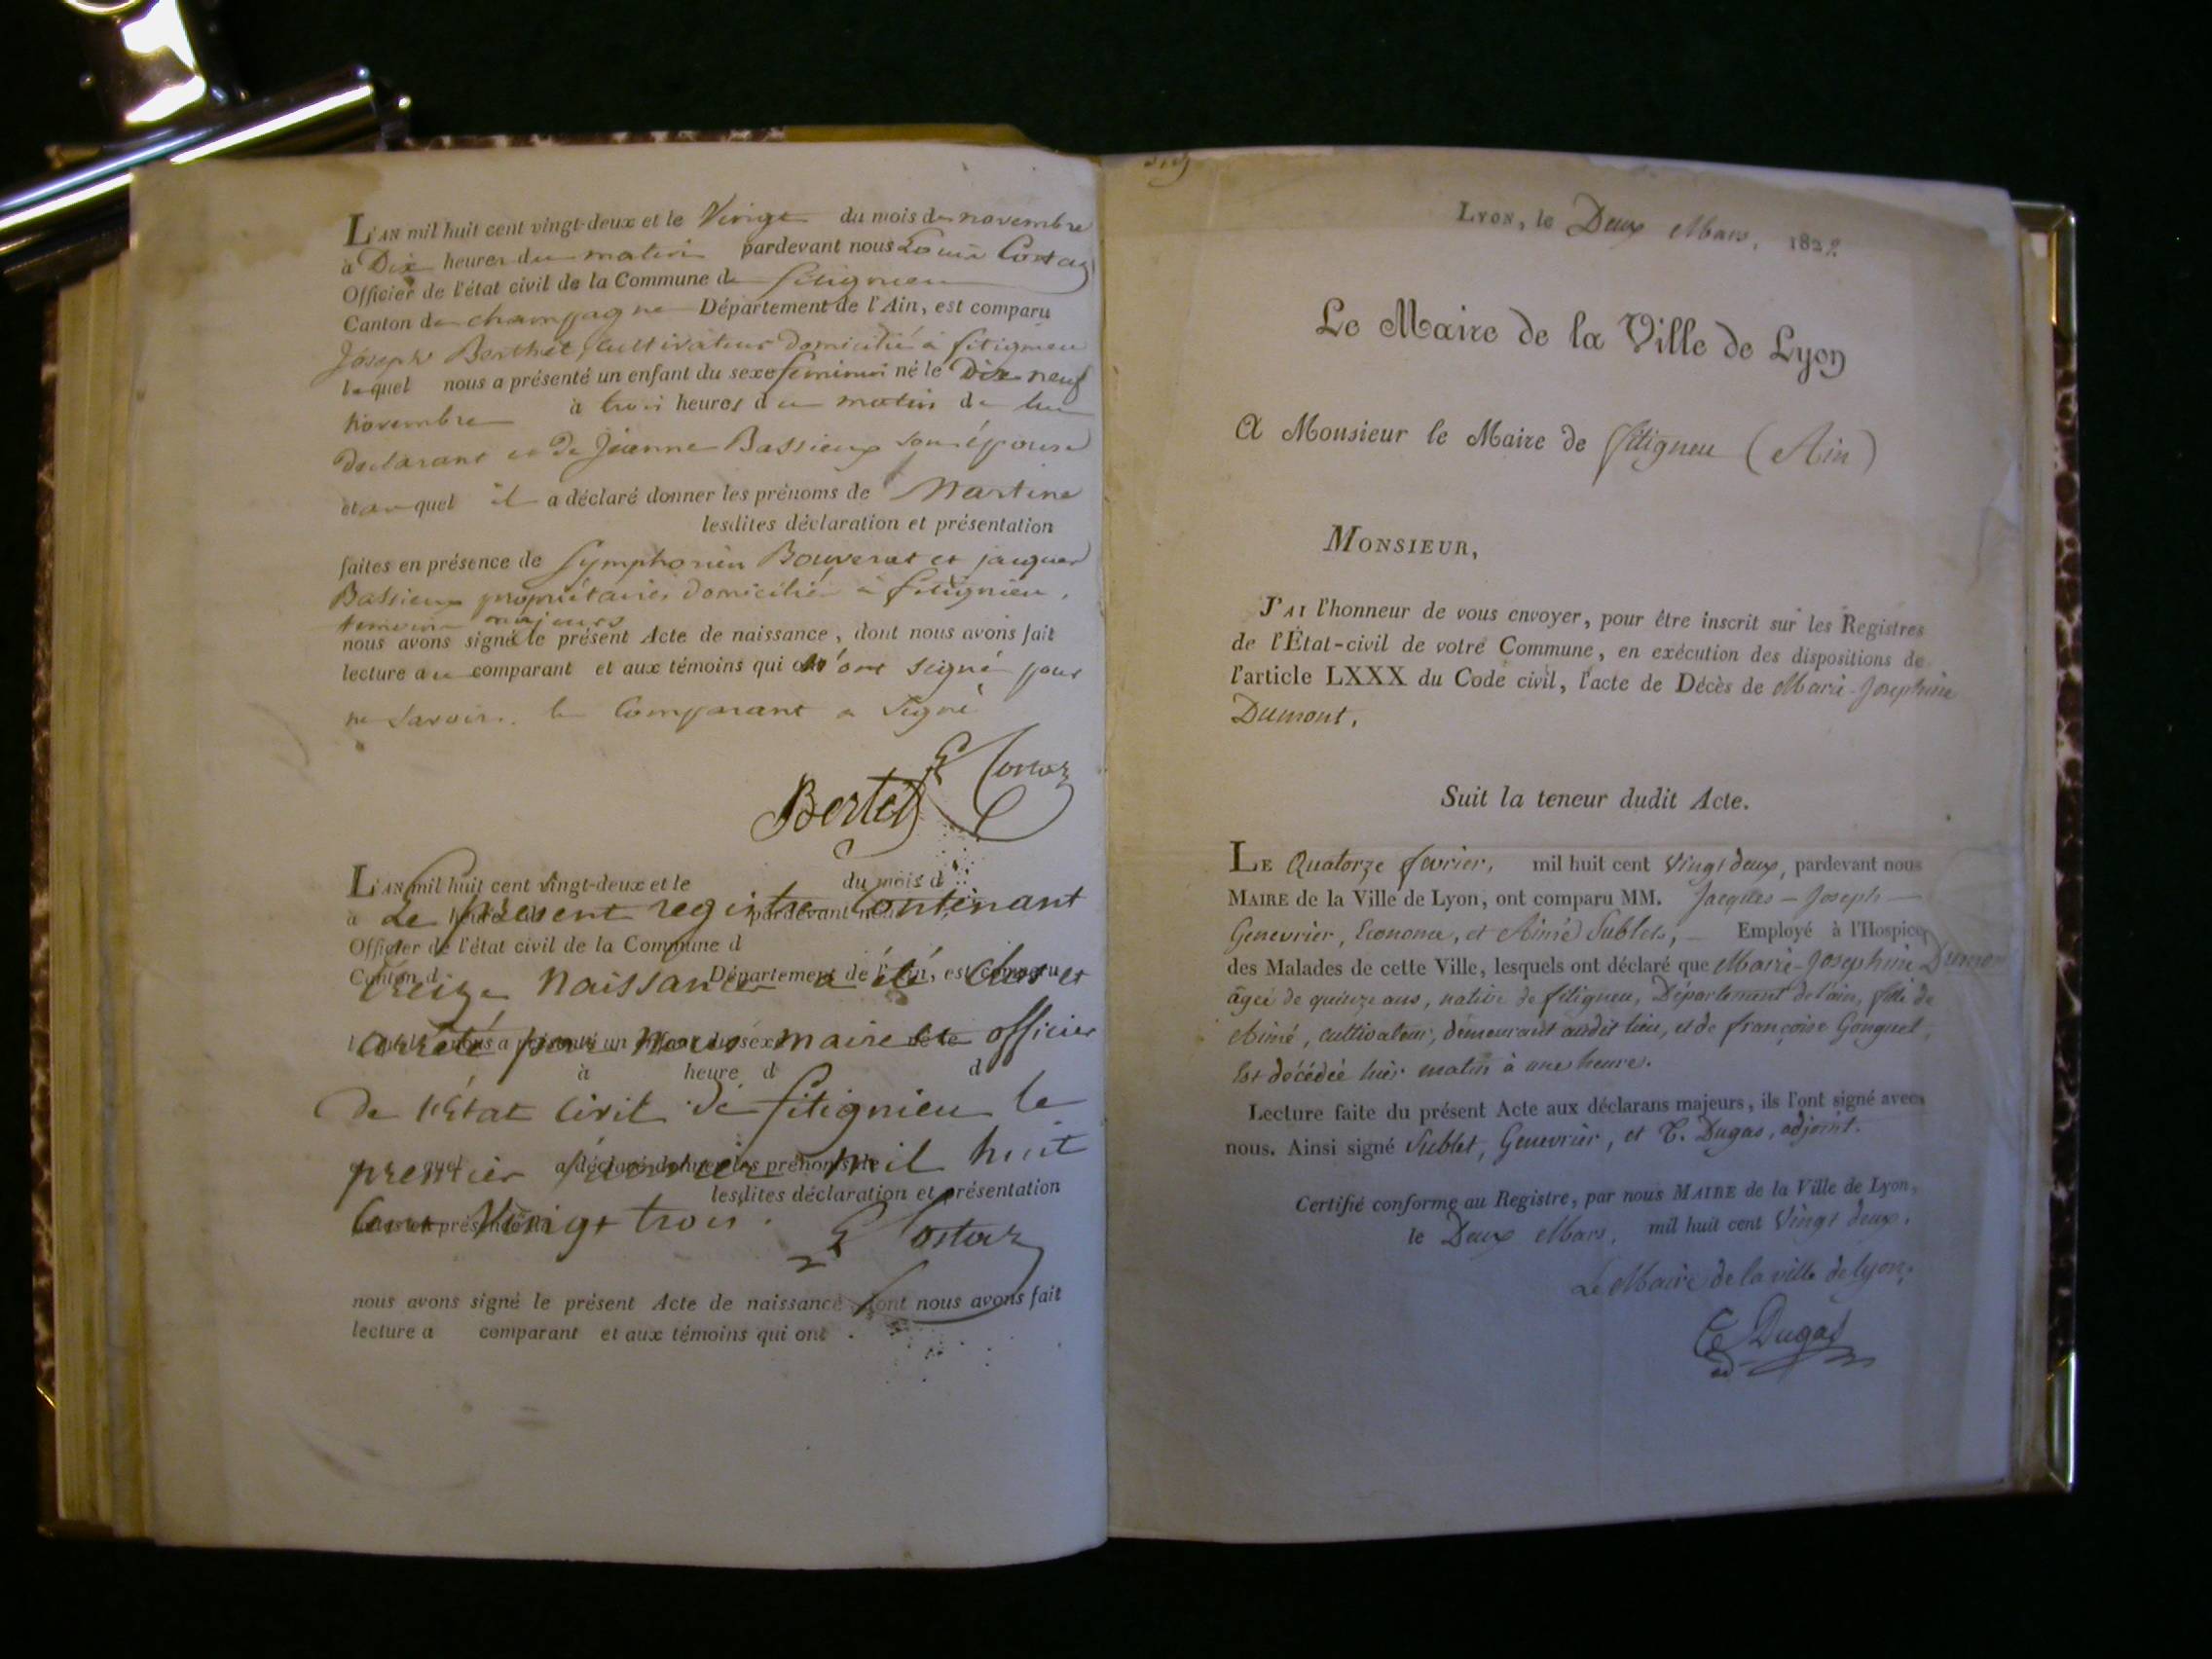 L'AN mil huit cent vingt-deux et le Vingt du mois de novembre
à Dix heures du matin pardevant nous Louis Costaz
Officier de l'état civil de la Commune de fitignieu
Canton de champagne Département de l'Ain, est comparu
Joseph Berthet, cultivateur domicilié à fitignieu
lequel nous a présenté un enfant du sexe feminin né le Dix neuf
novembre à trois heures du matin de lui
declarant et de Jeanne Bassieux son épouse
et auquel il a déclaré donner les prénoms de Martine
lesdites déclaration et présentation
faites en présence de Symphorien Bouverat et jacques
Bassieux propriétaires domiciliés à fitignieu,
temoins majeurs
nous avons signé le présent Acte de naissance, dont nous avons fait
lecture au comparant et aux témoins qui n'ont signé pour
ne savoir. le Comparant a Signé
L Costaz
Bertet
L'AN mil huit cent vingt-deux et le du mois d
Le Présent registre Contenant
Officier de l'état civil de la Commune d
Canton d Département de l'Ain, est comparu
treize Naissances a été Clos et
arrêté par Nous maire et officier
à heure d d
De l'État Civil De fitignieu le
premier janvier mil huit
lesdites déclaration et présentation
Cent Vingt trois.
L Costaz
nous avons signé le présent Acte de naissance dont nous avons fait
lecture a comparant et aux témoins qui ont
LYON, le Deux Mars, 1822
Le Maire de la Ville de Lyon
A Monsieur le Maire de fitigneu (Ain)
MONSIEUR,
J'AI l'honneur de vous envoyer, pour être inscrit sur les Registres
de l'État-civil de votre Commune, en exécution des dispositions de
l'article LXXX du Code civil, l'acte de Décès de Marie-Josephine
Dumont,
Suit la teneur dudit Acte.
LE Quatorze fevrier, mil huit cent Vingt deux, pardevant nous
MAIRE de la Ville de Lyon, ont comparu MM. Jacques-Joseph
Genevrier, Econome, et Aimé Sublet, Employé à l'Hospice
des Malades de cette Ville, lesquels ont déclaré que Marie-Josephine Dumont
âgée de quinze ans, native de fitigneu, Département de l'ain, fille de
Aimé, cultivateur, demeurant audit lieu, et de françoise Gonguet,
Est décédée hier matin à une heure.
Lecture faite du présent Acte aux déclarans majeurs, ils l'ont signé avec
nous. Ainsi signé Sublet, Genevrier, et C. Dugas, adjoint.
Certifié conforme au Registre, par nous MAIRE de la Ville de Lyon,
le Deux Mars, mil huit cent Vingt deux.
Le Maire de la ville de lyon,
C Dugas